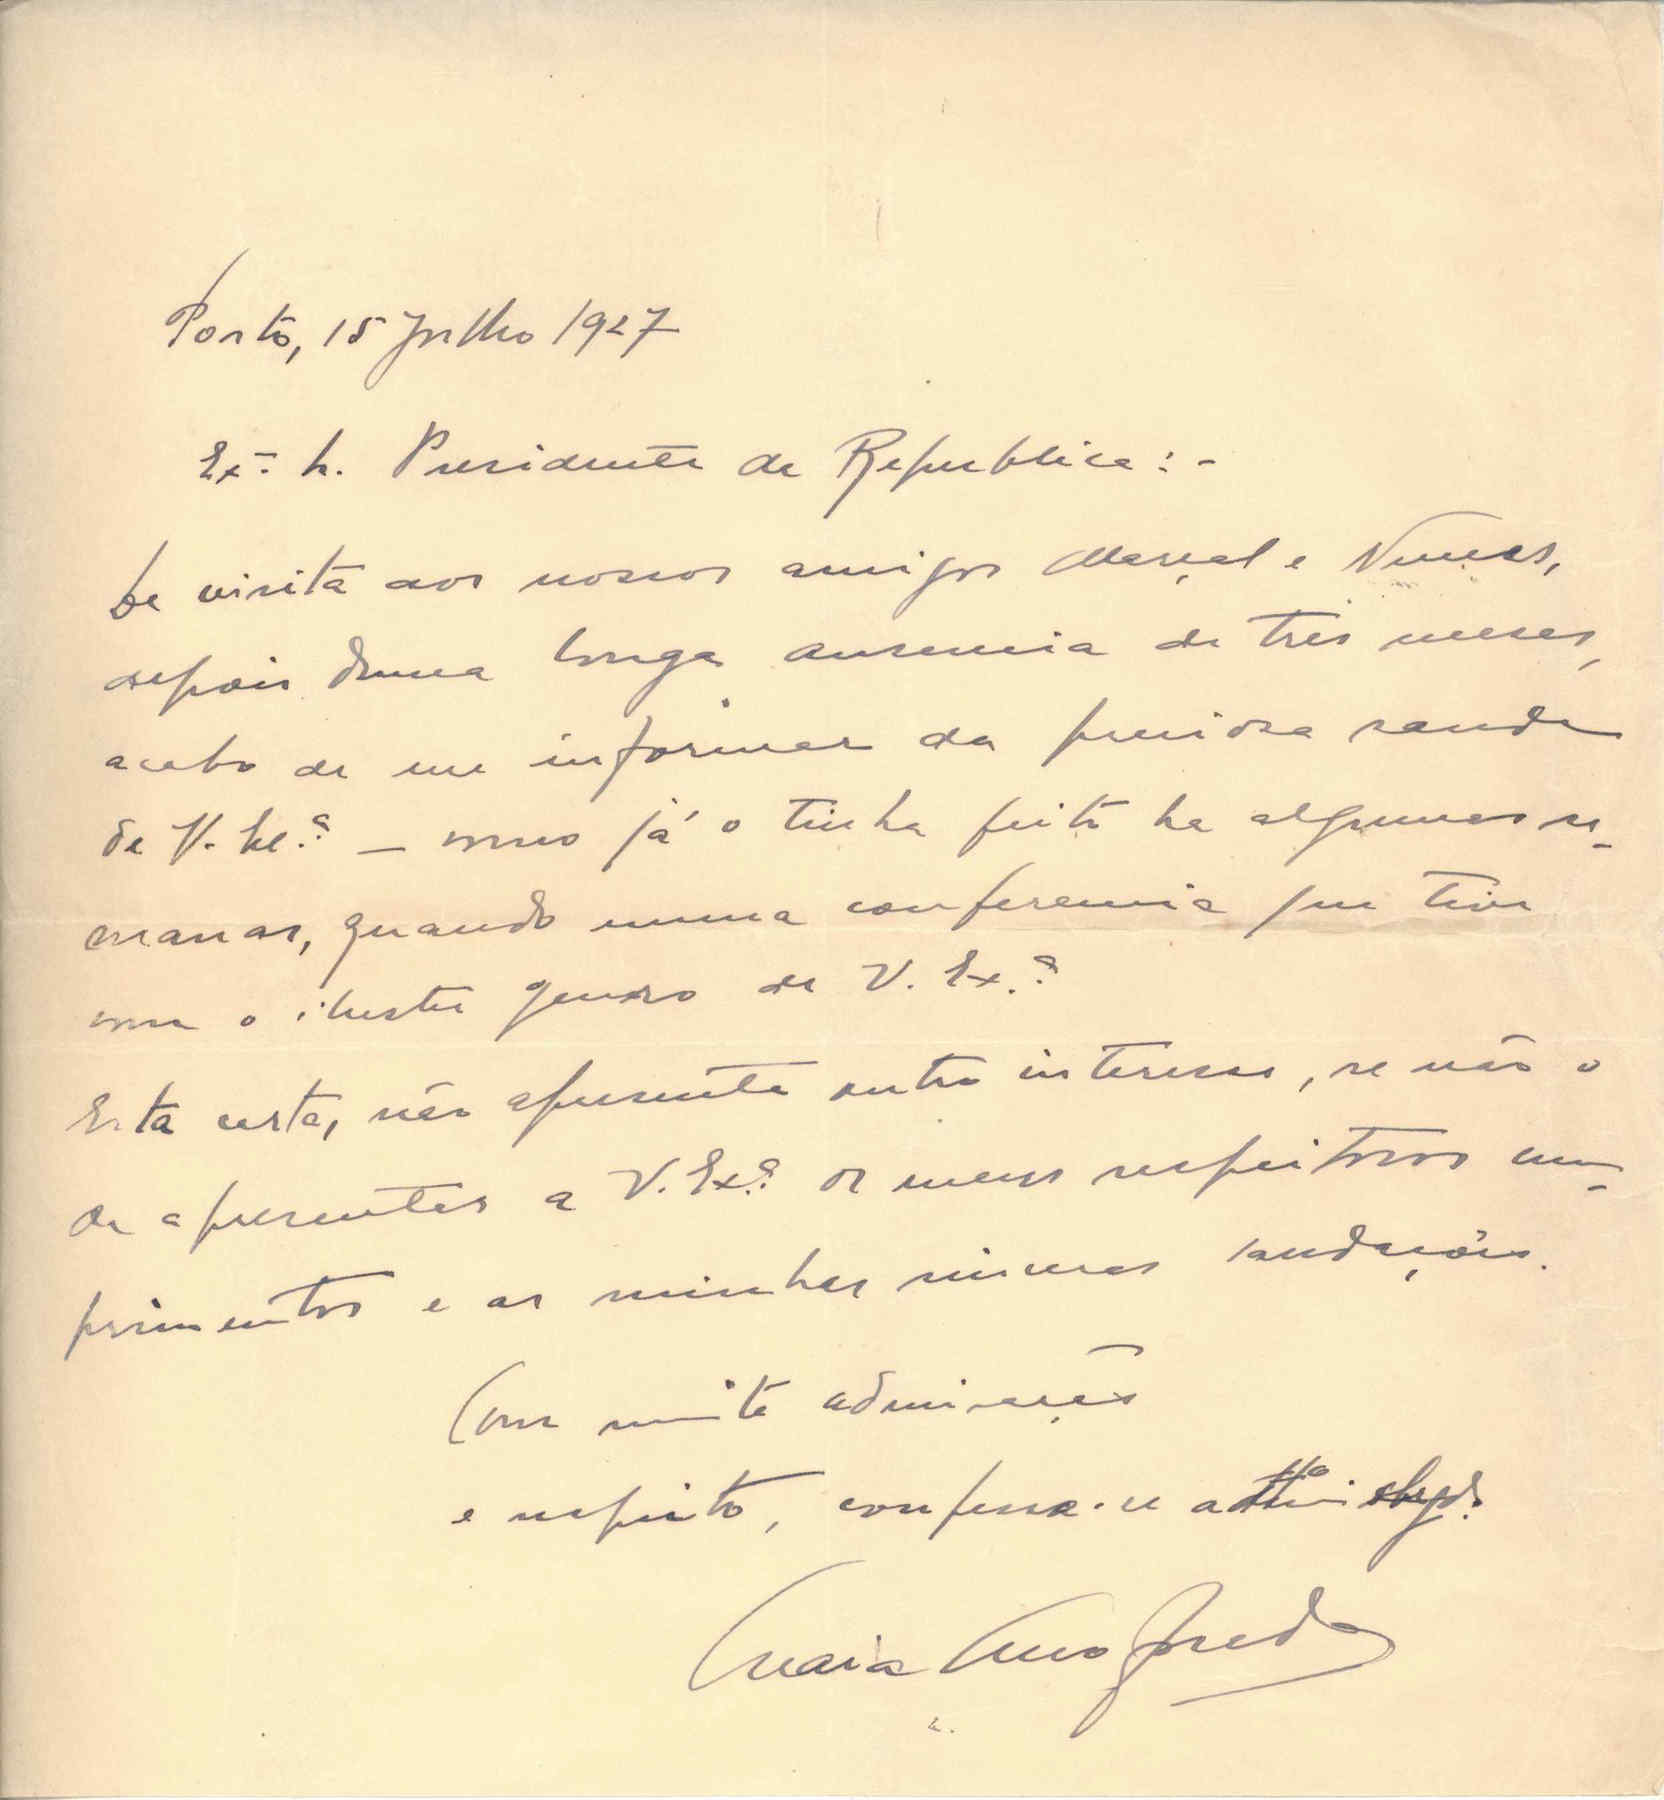 Porto, 15 Julho 1927
Ex.mo Sr. Presidente da Republica:-
De visita aos nossos amigos Marçal e Nunes,
depois duma longa ausencia de três meses,
acabo de me informar da preciosa saude
de V. Ex.ª — como já o tinha feito ha algumas se-
manas, quando numa conferencia que tive
com o ilustre genro de V. Ex.ª
Esta carta, não apresenta outro interesse, se não o
de apresentar a V. Ex.ª os meus respeitosos cum-
primentos e as minhas sinceras saudações.
Com muita admiração
e respeito, confessa-se